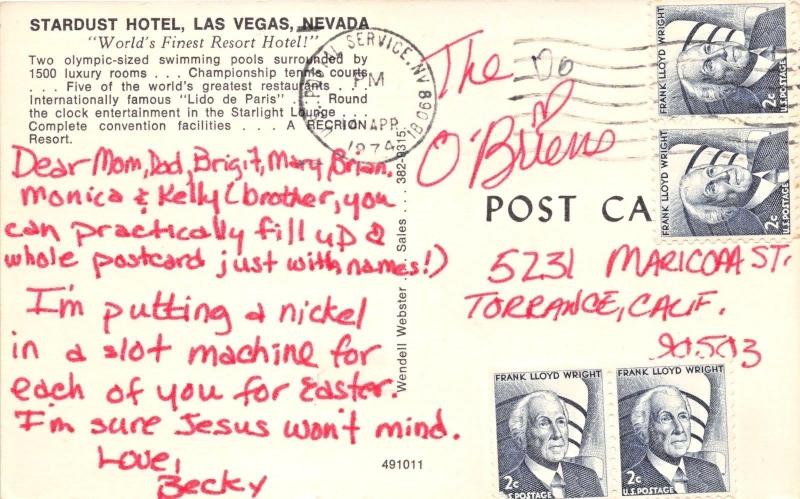 STARDUST HOTEL, LAS VEGAS, NEVADA
"World's Finest Resort Hotel!"
Two olympic-sized swimming pools surrounded by
1500 luxury rooms . . . Championship tennis courts
. . . Five of the world's greatest restaurants . . .
Internationally famous "Lido de Paris" . . . Round
the clock entertainment in the Starlight Lounge . . .
Complete convention facilities . . . A RECRION
Resort.
Dear Mom, Dad, Brigit, Mary, Brian,
Monica & Kelly (brother, you
can practically fill up a
whole postcard just with names!)
I'm putting a nickel
in a slot machine for
each of you for Easter.
I'm sure Jesus won't mind.
Love,
Becky
491011
Wendell Webster . . . Sales . . . 382-9315
POSTAL SERVICE, NV 890
PM
APR
1974
The
O'Briens
POST CA
5231 MARICOPA ST.
TORRANCE, CALIF.
90503
FRANK LLOYD WRIGHT
2c
U.S. POSTAGE
FRANK LLOYD WRIGHT
2c
U.S. POSTAGE
FRANK LLOYD WRIGHT
2c
U.S. POSTAGE
FRANK LLOYD WRIGHT
2c
U.S. POSTAGE